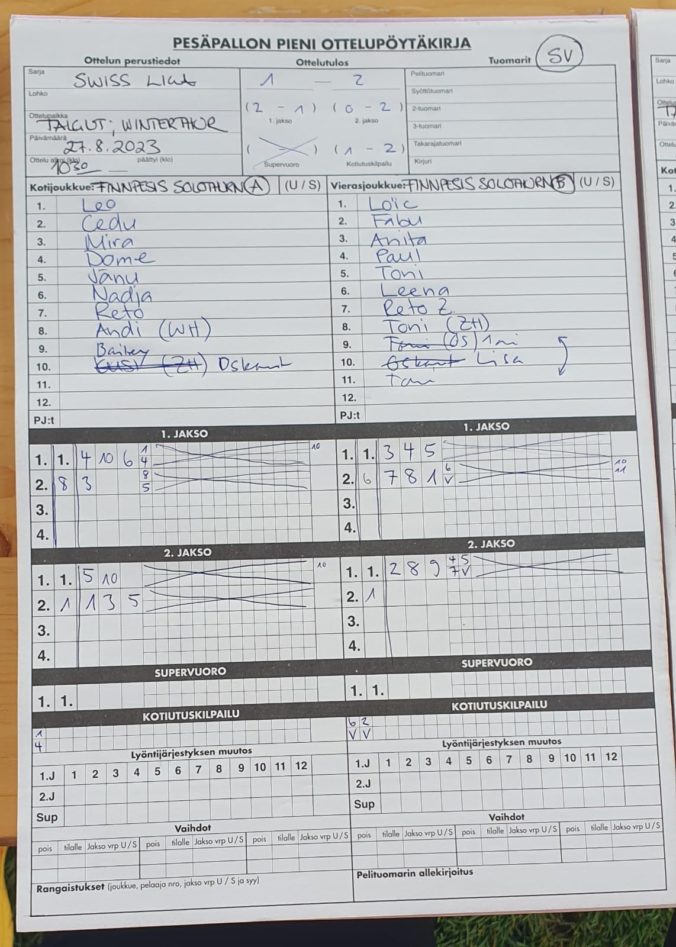 PESÄPALLON PIENI OTTELUPÖYTÄKIRJA
Ottelun perustiedot Ottelutulos Tuomarit SV
Sarja SWISS 1 — 2 Pelituomari
Lohko Syöttötuomari
(2 - 1) (0 - 2)
Ottelupaikka 1. jakso 2. jakso 2-tuomari
TALGUT, WINTERTHUR 3-tuomari
Päivämäärä 27.8.2023 (1 - 2) Takarajatuomari
Ottelu alkoi (klo) 1030 päättyi (klo) Supervuoro Kotiutuskilpailu Kirjuri
Kotijoukkue: FINNPESIS SOLOTHURN (A) (U / S) Vierasjoukkue: FINNPESIS SOLOTHURN (B) (U / S)
1. Leo 1. Loïc
2. Cedu 2. Fabu
3. Mira 3. Anita
4. Dome 4. Paul
5. Jänu 5. Toni
6. Nadja 6. Leena
7. Reto 7. Reto Z
8. Andi (WH) 8. Toni (ZH)
9. Bailey 9. (OS)
10. (ZH) Oskant 10. Oskant Lisa
11. 11.
12. 12.
PJ:t PJ:t
1. JAKSO 1. JAKSO
1. 1. 4 10 6 1 4 10 1. 1. 3 4 5
2. 8 3 8 5 2. 6 7 8 1 6 V 10 11
3. 3.
4. 4.
2. JAKSO 2. JAKSO
1. 1. 5 10 10 1. 1. 2 8 9 4 5 7 V
2. 1 1 3 5 2. 1
3. 3.
4. 4.
SUPERVUORO SUPERVUORO
1. 1. 1. 1.
KOTIUTUSKILPAILU KOTIUTUSKILPAILU
1 6 2
4 V V
Lyöntijärjestyksen muutos Lyöntijärjestyksen muutos
1.J 1 2 3 4 5 6 7 8 9 10 11 12 1.J 1 2 3 4 5 6 7 8 9 10 11 12
2.J 2.J
Sup Sup
Vaihdot Vaihdot
pois tilalle Jakso vrp U / S pois tilalle Jakso vrp U / S pois tilalle Jakso vrp U / S pois tilalle Jakso vrp U / S pois tilalle Jakso vrp U / S pois tilalle Jakso vrp U / S
Rangaistukset (joukkue, pelaaja nro, jakso vrp U / S ja syy) Pelituomarin allekirjoitus